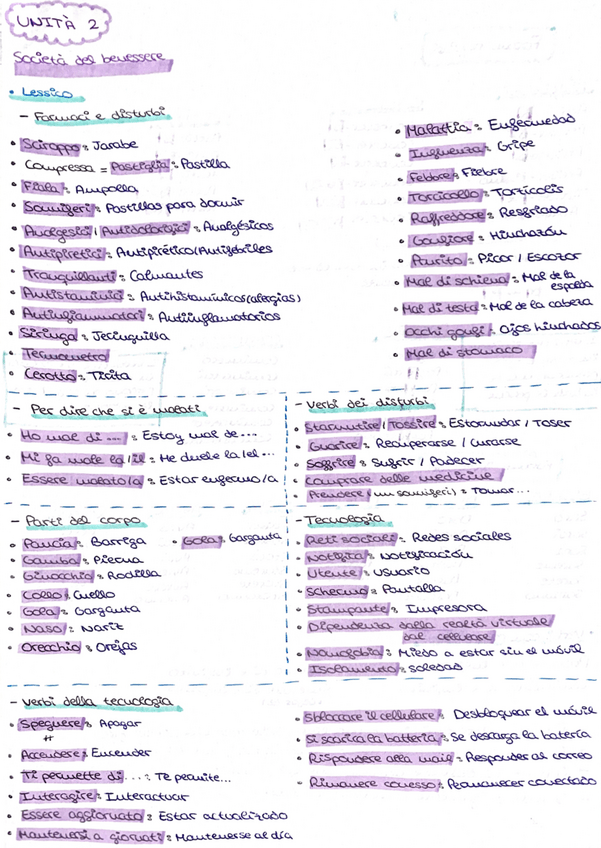 UNITÀ 2
Società del benessere
• Lessico
- Farmaci e disturbi
• Sciroppo: Jarabe
• Compressa = Pastiglia: Pastilla
• Fiala: Ampolla
• Sonniferi: Pastillas para dormir
• Analgesici / Antidolorifici: Analgésicos
• Antipiretici: Antipirético/Antifebriles
• Tranquillanti: Calmantes
• Antistaminici: Antihistamínicos (alergias)
• Antinfiammatori: Antiinflamatorios
• Siringa: Jeringuilla
• Termometro
• Cerotto: Tirita
• Malattia: Enfermedad
• Influenza: Gripe
• Febbre: Fiebre
• Torcicollo: Tortícolis
• Raffreddore: Resfriado
• Gonfiore: Hinchazón
• Prurito: Picor / Escozor
• Mal di schiena: Mal de la
espalda
• Mal di testa: Mal de la cabeza
• Occhi gonfi: Ojos hinchados
• Mal di stomaco
- Per dire che si è malati
• Ho mal di ...: Estoy mal de...
• Mi fa male la/il: Me duele la/el...
• Essere malato/a: Estar enfermo/a
- Verbi dei disturbi
• Starnutire / Tossire: Estornudar / Toser
• Guarire: Recuperarse / Curarse
• Soffrire: Sufrir / Padecer
• Comprare delle medicine
• Prendere (un sonnifero): Tomar...
- Parti del corpo
• Pancia: Barriga
• Gola: Garganta
• Gamba: Pierna
• Ginocchio: Rodilla
• Collo: Cuello
• Gola: Garganta
• Naso: Nariz
• Orecchio: Orejas
- Tecnologia
• Reti sociali: Redes sociales
• Notifica: Notificación
• Utente: Usuario
• Schermo: Pantalla
• Stampante: Impresora
• Dipendenza dalla realtà virtuale
dal cellulare
• Nomofobia: Miedo a estar sin el móvil
• Isolamento: soledad
- Verbi della tecnologia
• Spegnere: Apagar
≠
• Accendere: Encender
• Ti permette di...: Te permite...
• Interagire: Interactuar
• Essere aggiornato: Estar actualizado
• Mantenersi a giornati: Mantenerse al día
• Sbloccare il cellulare: Desbloquear el móvil
• Si scarica la batteria: Se descarga la batería
• Rispondere alla mail: Responder al correo
• Rimanere connesso: Permanecer conectado